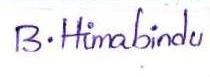 B. Himabindu